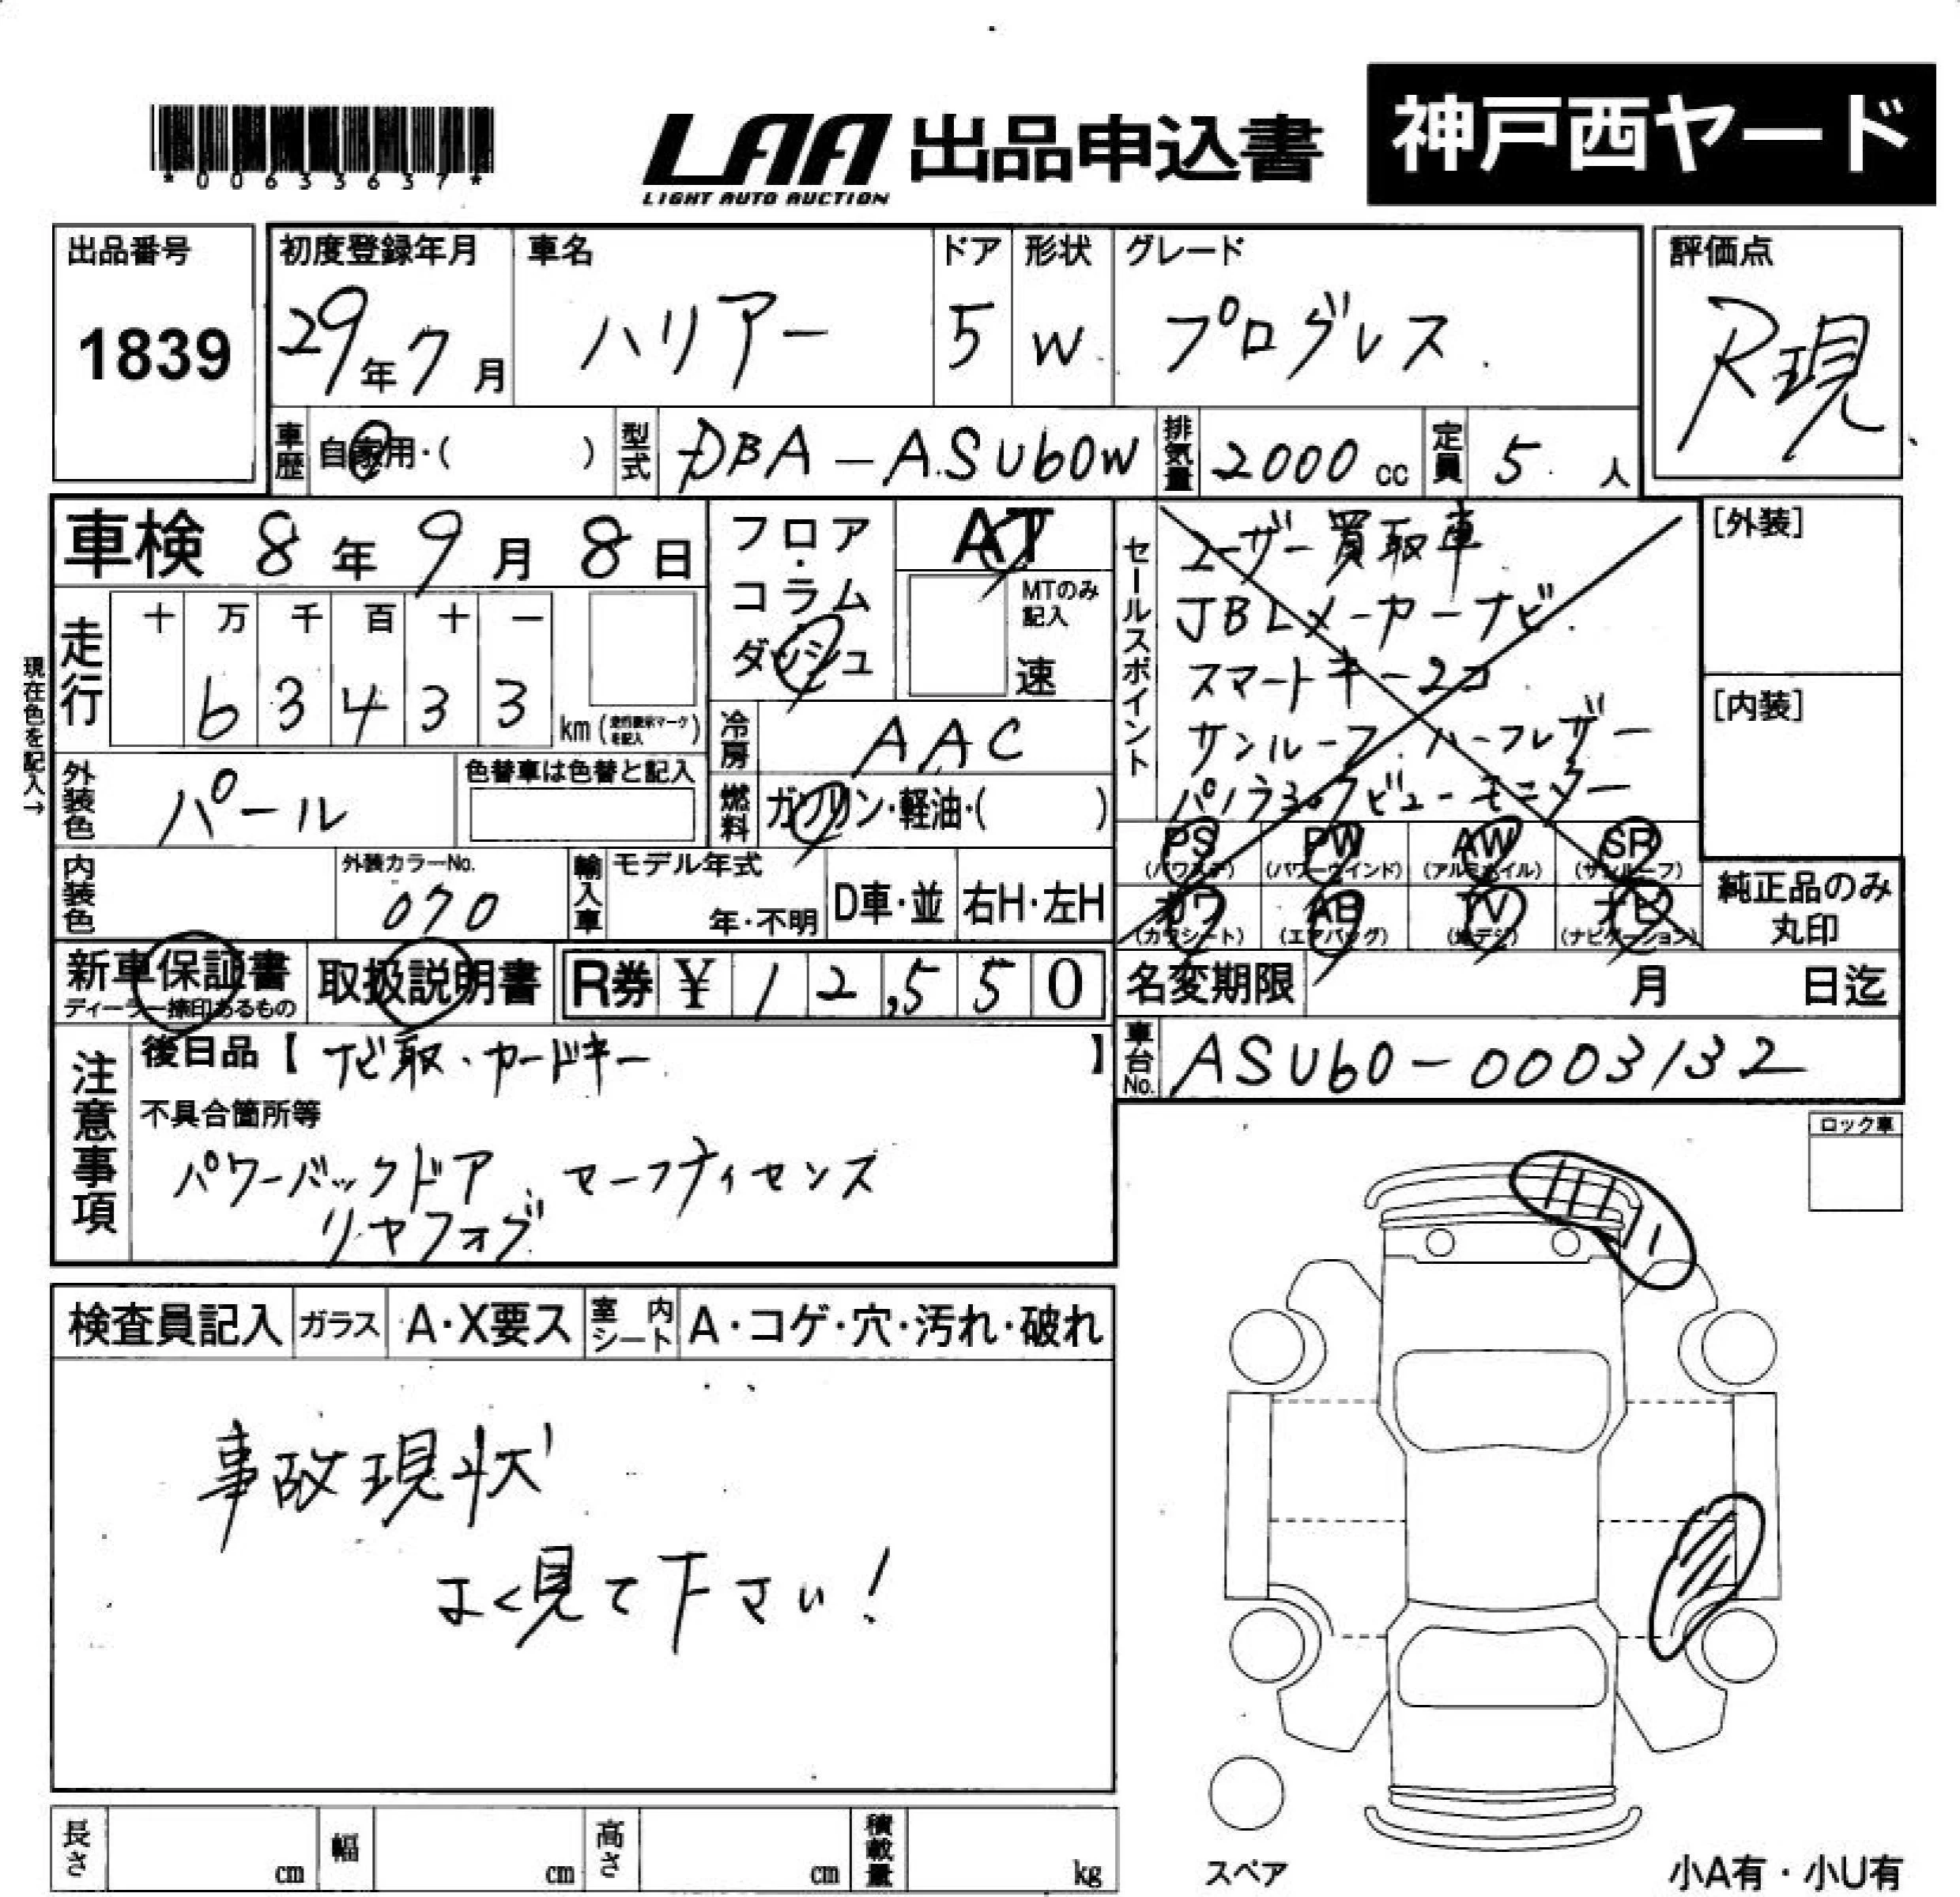 *00633637*
LAA 出品申込書 神戸西ヤード
LIGHT AUTO AUCTION
出品番号 1839
初度登録年月 29年7月
車名 ハリアー
ドア 5
形状 W
グレード プログレス
評価点 R現
車歴 自家用・( )
型式 DBA-ASU60W
排気量 2000cc
定員 5人
車検 8年9月8日
走行 十 万 千 百 十 一
6 3 4 3 3 km (走行表示マークを記入)
現在色を記入→
フロア・コラム・ダッシュ
AT
MTのみ記入
速
冷房 AAC
燃料 ガソリン・軽油・( )
セールスポイント
ユーザー買取車
JBLメーカーナビ
スマートキー2コ
サンルーフ.ハーフレザー
パノラミックビューモニター
[外装]
[内装]
外装色 パール
色替車は色替と記入
内装色
外装カラーNo. 070
輸入車 モデル年式 年・不明 D車・並 右H・左H
PS (パワステ) PW (パワーウインド) AW (アルミホイル) SR (サンルーフ)
カワ (カワシート) AB (エアバッグ) TV (地デジ) ナビ (ナビゲーション)
純正品のみ丸印
新車保証書 ディーラー捺印あるもの
取扱説明書
R券 ¥ 12,550
名変期限 月 日迄
車台No. ASU60-0003132
注意事項
後日品【ナビ取・カードキー】
不具合箇所等
パワーバックドア、セーフティセンス
リヤフォグ
ロック車
検査員記入 ガラス A・X要ス 室内シート A・コゲ・穴・汚れ・破れ
事故現状
よく見て下さい!
長さ cm 幅 cm 高さ cm 積載量 kg
スペア
小A有・小U有